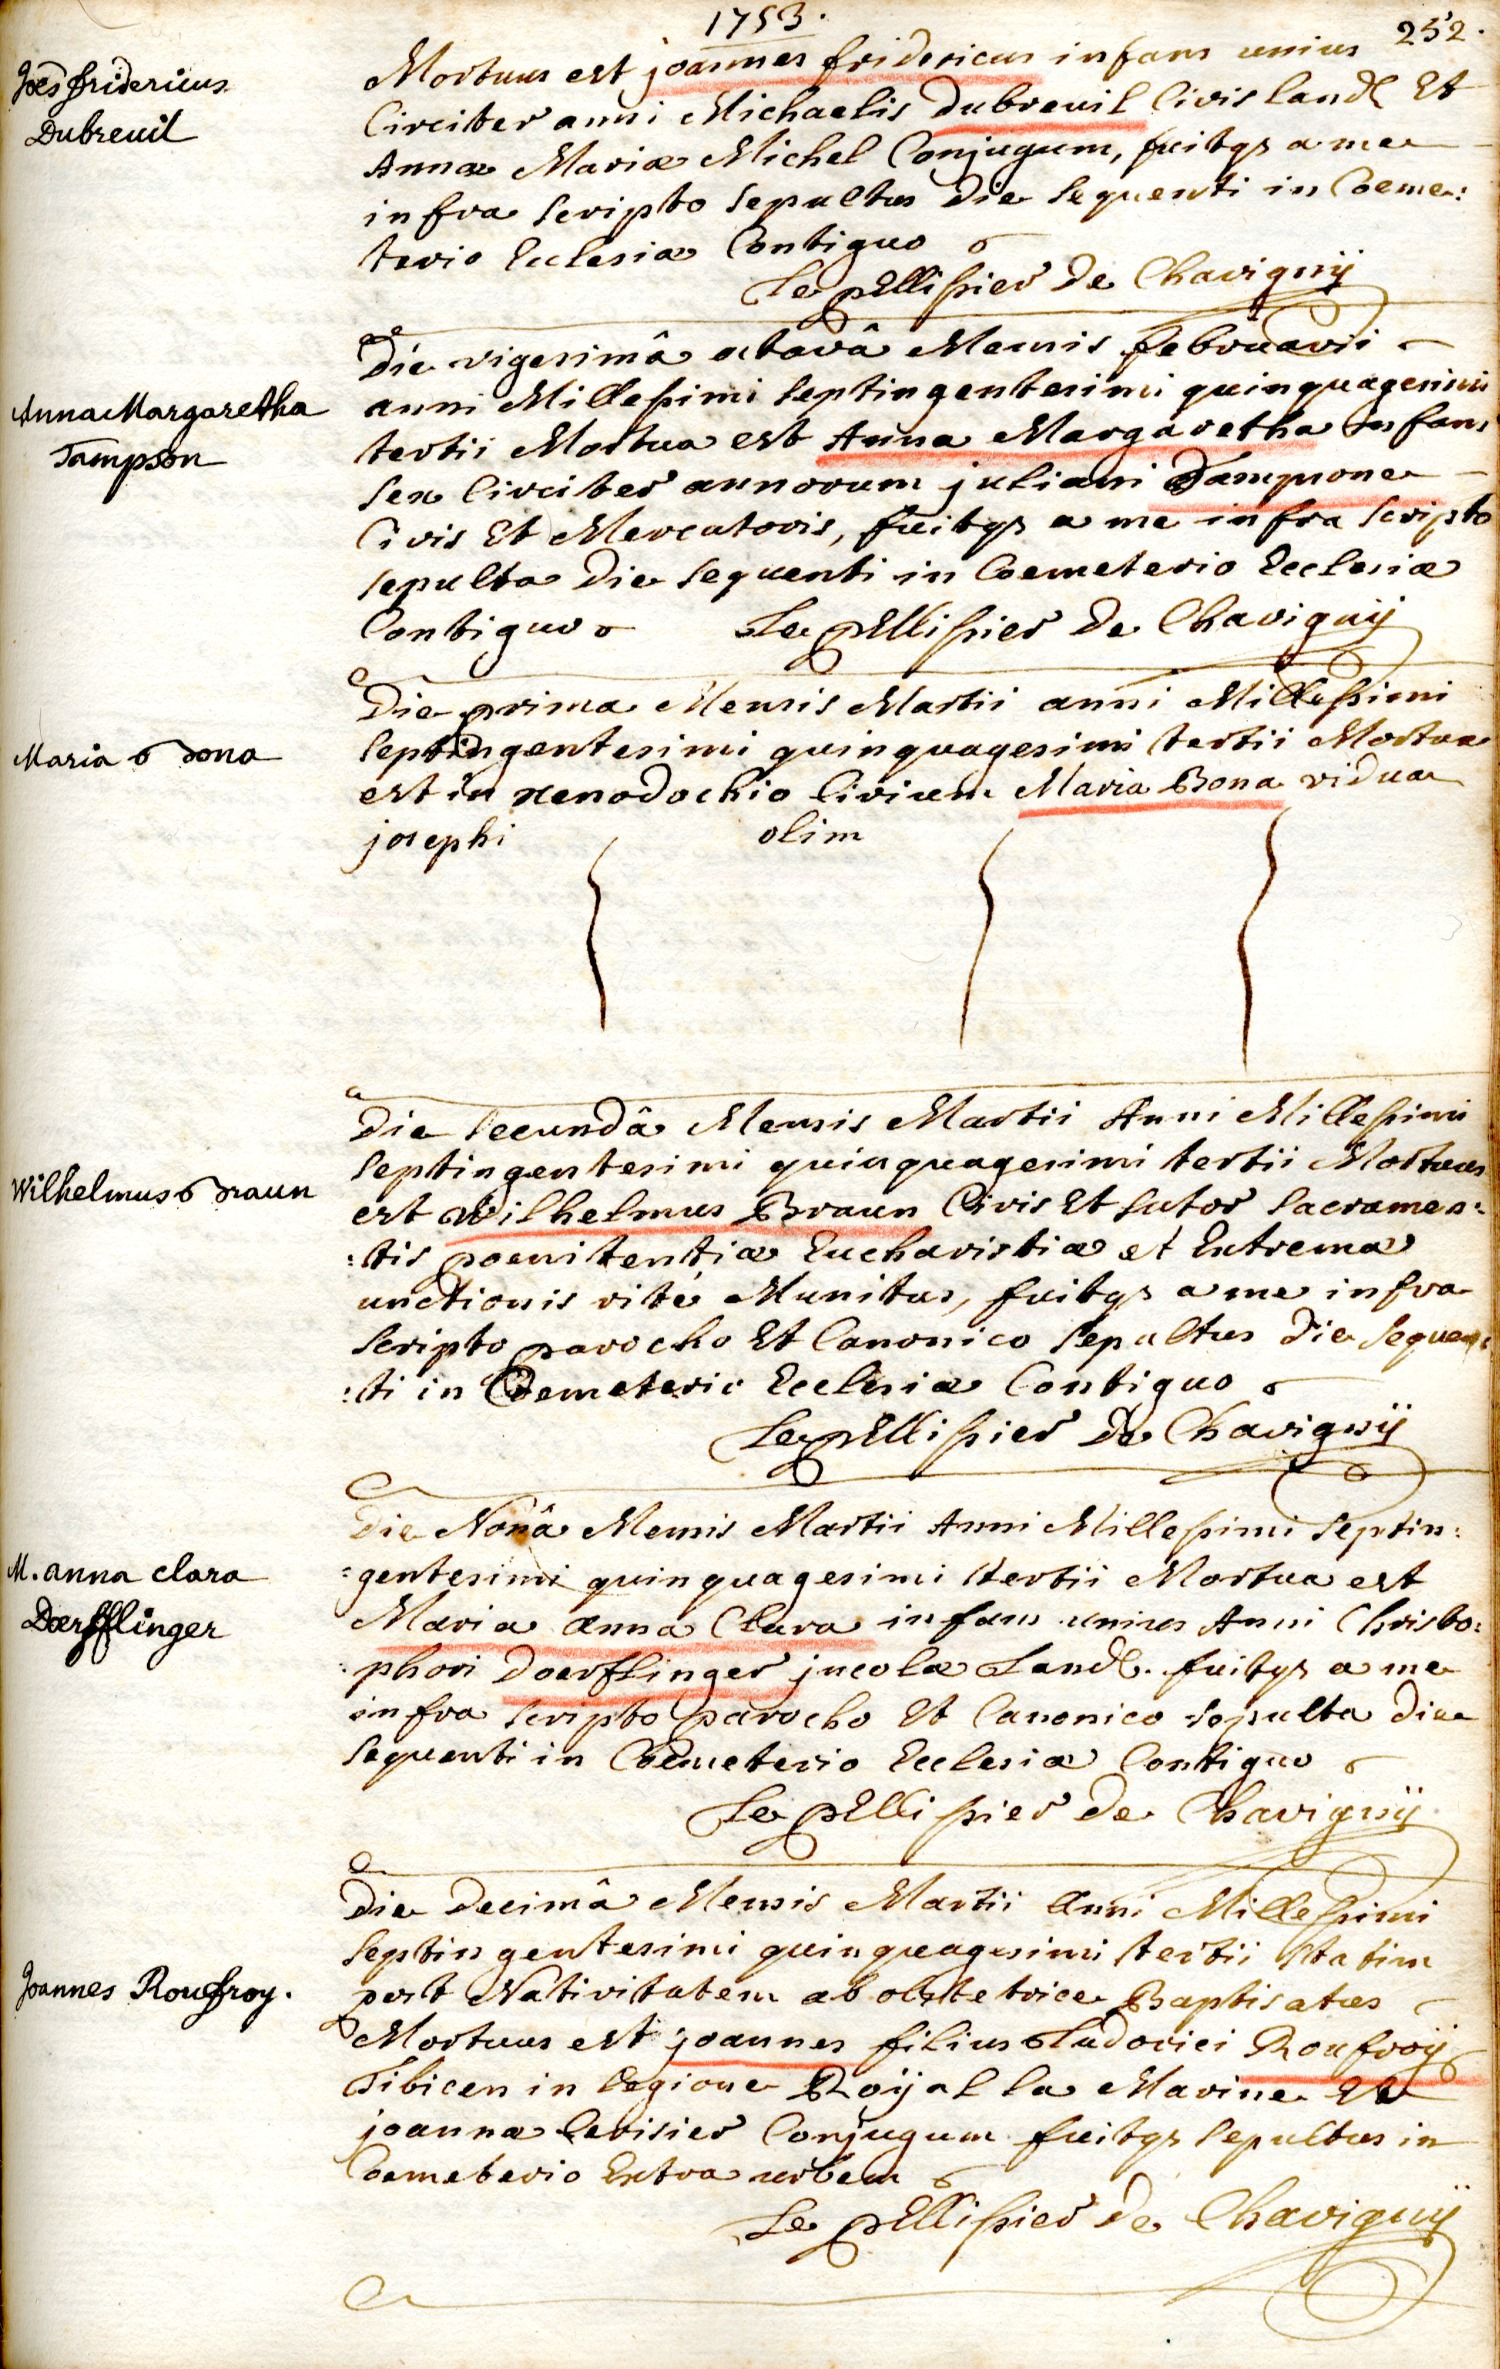 1753.
252.
Joēs fridericus
Dubreuil
Mortuus est joannes fridericus infans unius
Circiter anni Michaelis Dubreuil Civis land. Et
Annæ Mariæ Michel Conjugum, fuitqs a me
infra scripto sepultus die sequenti in Coeme:
terio Ecclesiæ Contiguo
Le pEllissier de Chavignÿ
Anna Margaretha
Tampson
Die vigesimâ octavâ Mensis februarii
anni Millessimi septingentesimi quinquagesimi
tertii Mortua est Anna Margaretha infans
sex Circiter annorum juliani Dampsone
Civis Et Mercatoris, fuitqs a me infra scripto
sepulta die sequenti in Coemeterio Ecclesiæ
Contiguo Le pEllissier de Chavignÿ
Maria Bona
Die prima Mensis Martii anni Millessimi
septingentesimi quinquagesimi tertii Mortua
est in xenodochio Civium Maria Bona vidua
josephi olim
Wilhelmus Braun
Die secundâ Mensis Martii Anni Millessimi
septingentesimi quinquagesimi tertii Mortuus
est Wilhelmus Braun Civis Et sutor sacramen:
:tis poenitentiæ Eucharistiæ et Extremæ
unctionis rité Munitus, fuitqs a me infra
scripto parocho Et Canonico sepultus die sequen:
:ti in Coemeterio Ecclesiæ Contiguo
Le pEllissier De Chavignÿ
M. anna clara
Doerfflinger
Die Nonâ Mensis Martii Anni Millessimi septin:
:gentesimi quinquagesimi tertii Mortua est
Maria anna Clara infans unius Anni Christo:
:phori Doerflinger jncolæ Land. fuitqs a me
infra scripto parocho Et Canonico sepulta die
sequenti in Coemeterio Ecclesiæ Contiguo
Le pElli ssier de Chavignÿ
Joannes Roufroy.
Die Decimâ Mensis Martii Anni Millessimi
septingentesimi quinquagesimi tertii statim
post Nativitatem ab obstetrice Baptisatus
Mortuus est joannes filius Ludovici Roufroÿ
Tibicen in legione Roÿal la Marine Et
joannæ Cerisier Conjugum fuitqs sepultus in
Coemeterio Extra urbem
Le pEllissier de Chavignÿ